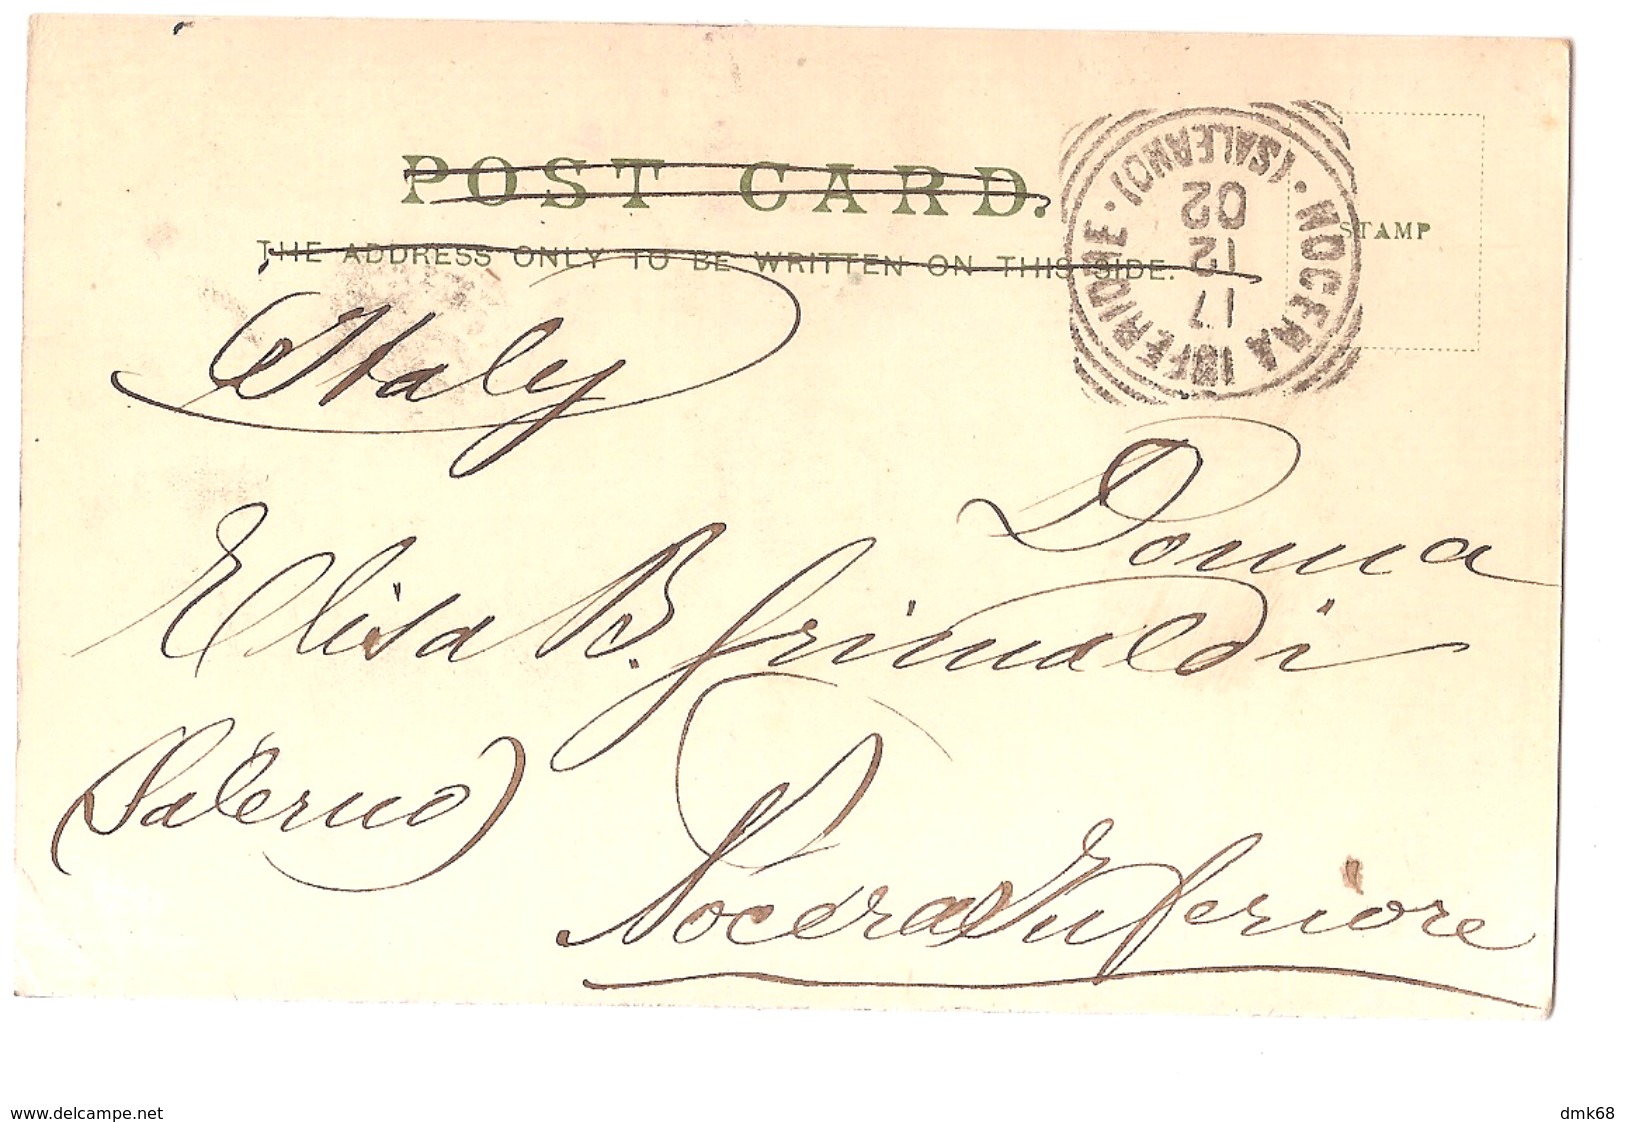 POST CARD.
THE ADDRESS ONLY TO BE WRITTEN ON THIS SIDE.
STAMP
NOCERA INFERIORE · (SALERNO) ·
17
12
02
Italy
Donna
Elisa B. Grimaldi
(Salerno)
Nocera Inferiore
www.delcampe.net
dmk68